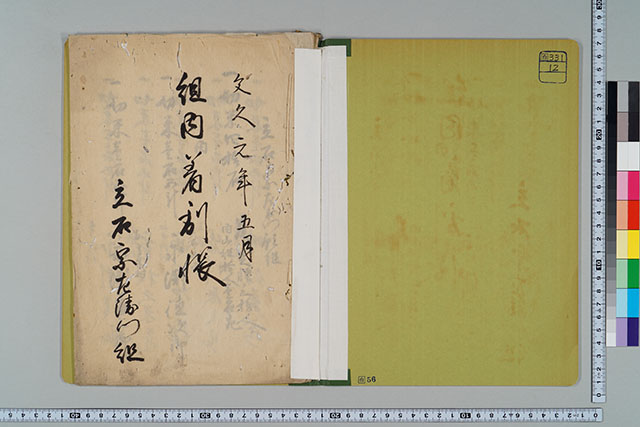 文久元年五月
組内着到帳
立石宗左衛門組
331
12
56